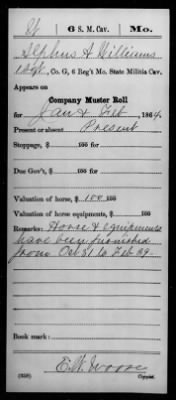 6 S. M. Cav. Mo.
Williams
Co. G, 6 Reg't Mo. State Militia Cav.
Appears on
Company Muster Roll
for Jan & Feb, 1864.
Present or absent Present
Stoppage, $ 100 for
Due Gov't, $ 100 for
Valuation of horse, $ 100 100
Valuation of horse equipments, $ 100
Remarks: Horse & equipments
have been furnished
from Oct 31 to Feb 29.
Book mark:
(358) Copyist.